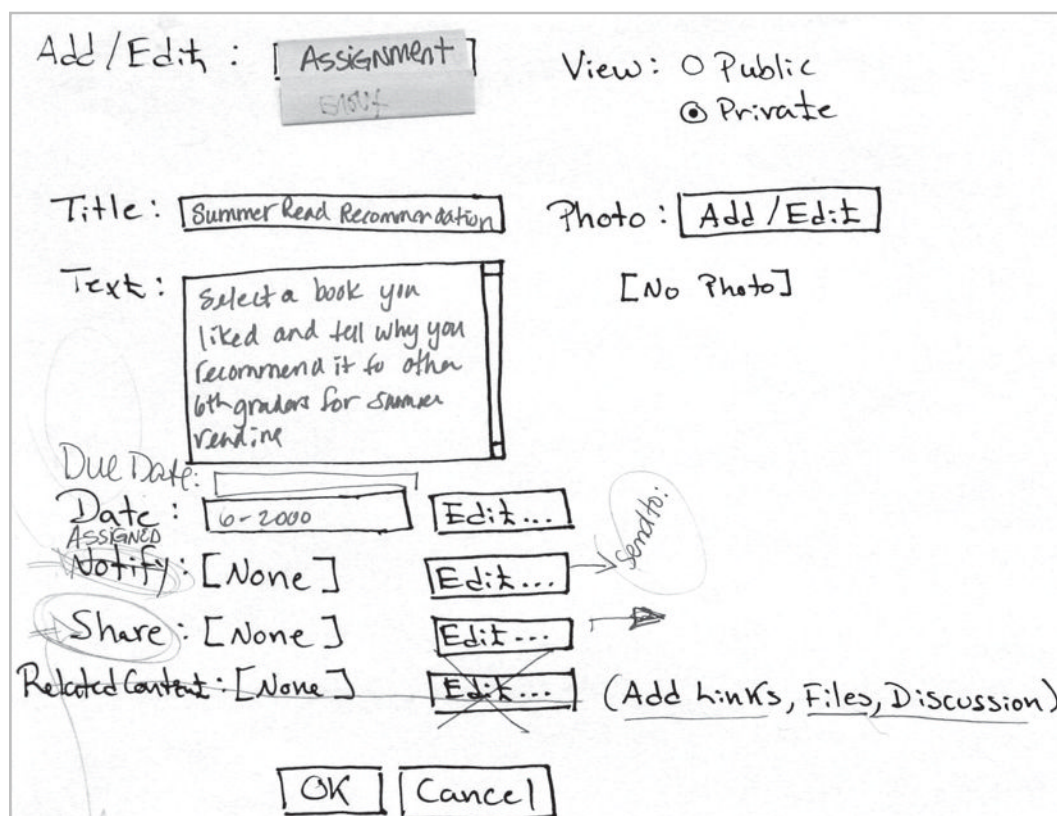 Add/Edit : [ Assignment ]
View: Public
Private
Title: Summer Read Recommendation
Photo: Add/Edit
[No Photo]
Text:
Select a book you
liked and tell why you
recommend it to other
6th graders for summer
reading
Due Date:
Date : 6-2000 Edit...
ASSIGNED
Notify : [None] Edit...
send to:
Share : [None] Edit...
Related Content : [None] Edit... (Add Links, Files, Discussion)
OK Cancel